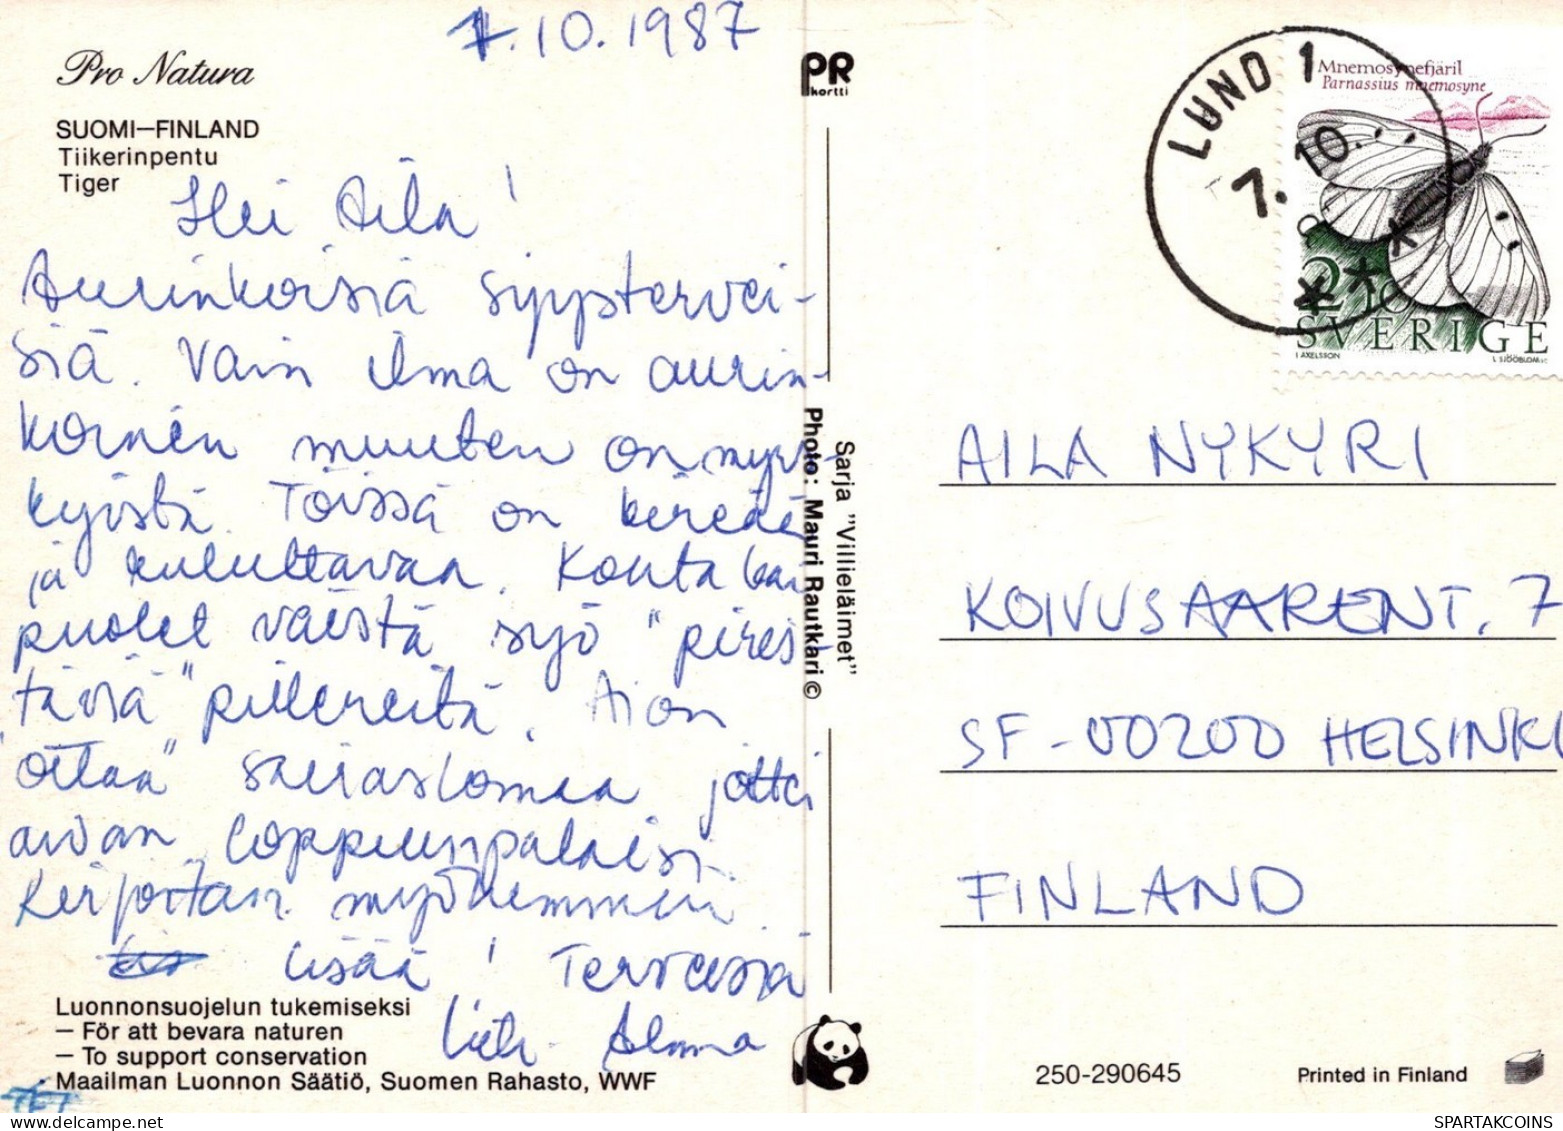 1.10.1987
Pro Natura
SUOMI–FINLAND
Tiikerinpentu
Tiger
Hei Aila!
Aurinkoisia syystervei-
siä. Vain ilma on aurin-
koinen muuten on myrs-
kyistä. Töissä on kiireää
ja kuluttavaa. Kohta kai
puolet väestä syö "piris-
täviä" pillereitä. Aion
"ottaa" sairaslomaa jottei
aivan loppuunpalaisi.
Kirjoitan myöhemmin
lisää! Terveisiä
Alma
Luonnonsuojelun tukemiseksi
– För att bevara naturen
– To support conservation
Maailman Luonnon Säätiö, Suomen Rahasto, WWF
PR
kortti
Sarja "Villieläimet"
Photo: Mauri Rautkari ©
LUND 1
7.10.
Mnemosynefjäril
Parnassius mnemosyne
2 10
SVERIGE
I. AXELSSON
L. SJÖÖBLOM sc
AILA NYKYRI
KOIVUSAARENT. 7
SF-00200 HELSINKI
FINLAND
250-290645
Printed in Finland
SPARTAKCOINS